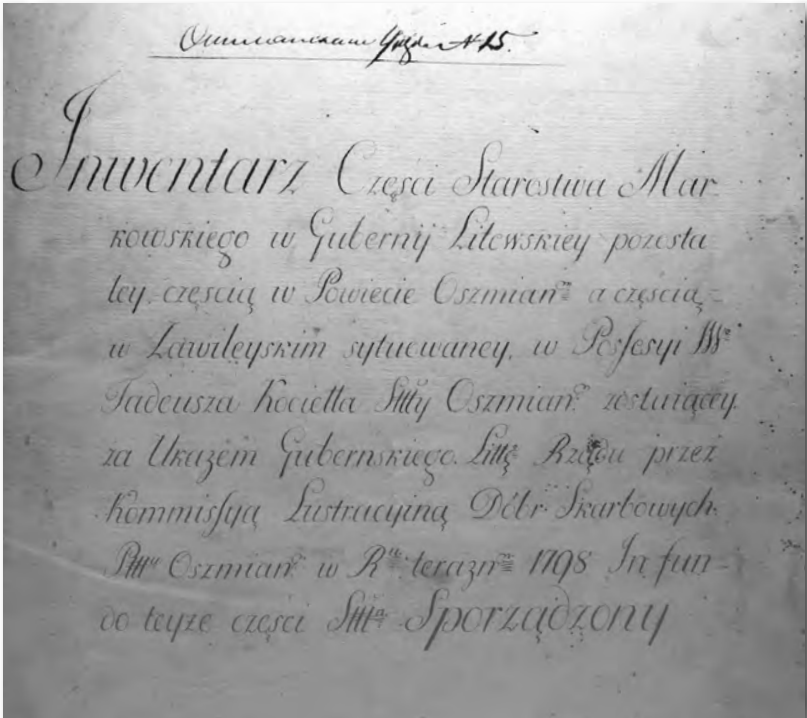 № 15.
Inwentarz Części Starostwa Mar
kowskiego w Gubernij Litewskiey pozosta
łey, częścią w Powiecie Oszmiań: a częścią
w Zawileyskim sytuowaney, w Possesyi
Tadeusza Kociełła Sttty Oszmiań: zostaiącey
za Ukazem Gubernskiego Littę Rządu przez
Kommissyą Lustracyiną Dóbr Skarbowych
Oszmiań: w R: terazn: 1798 In fun-
do teyże części Sttta Sporządzony